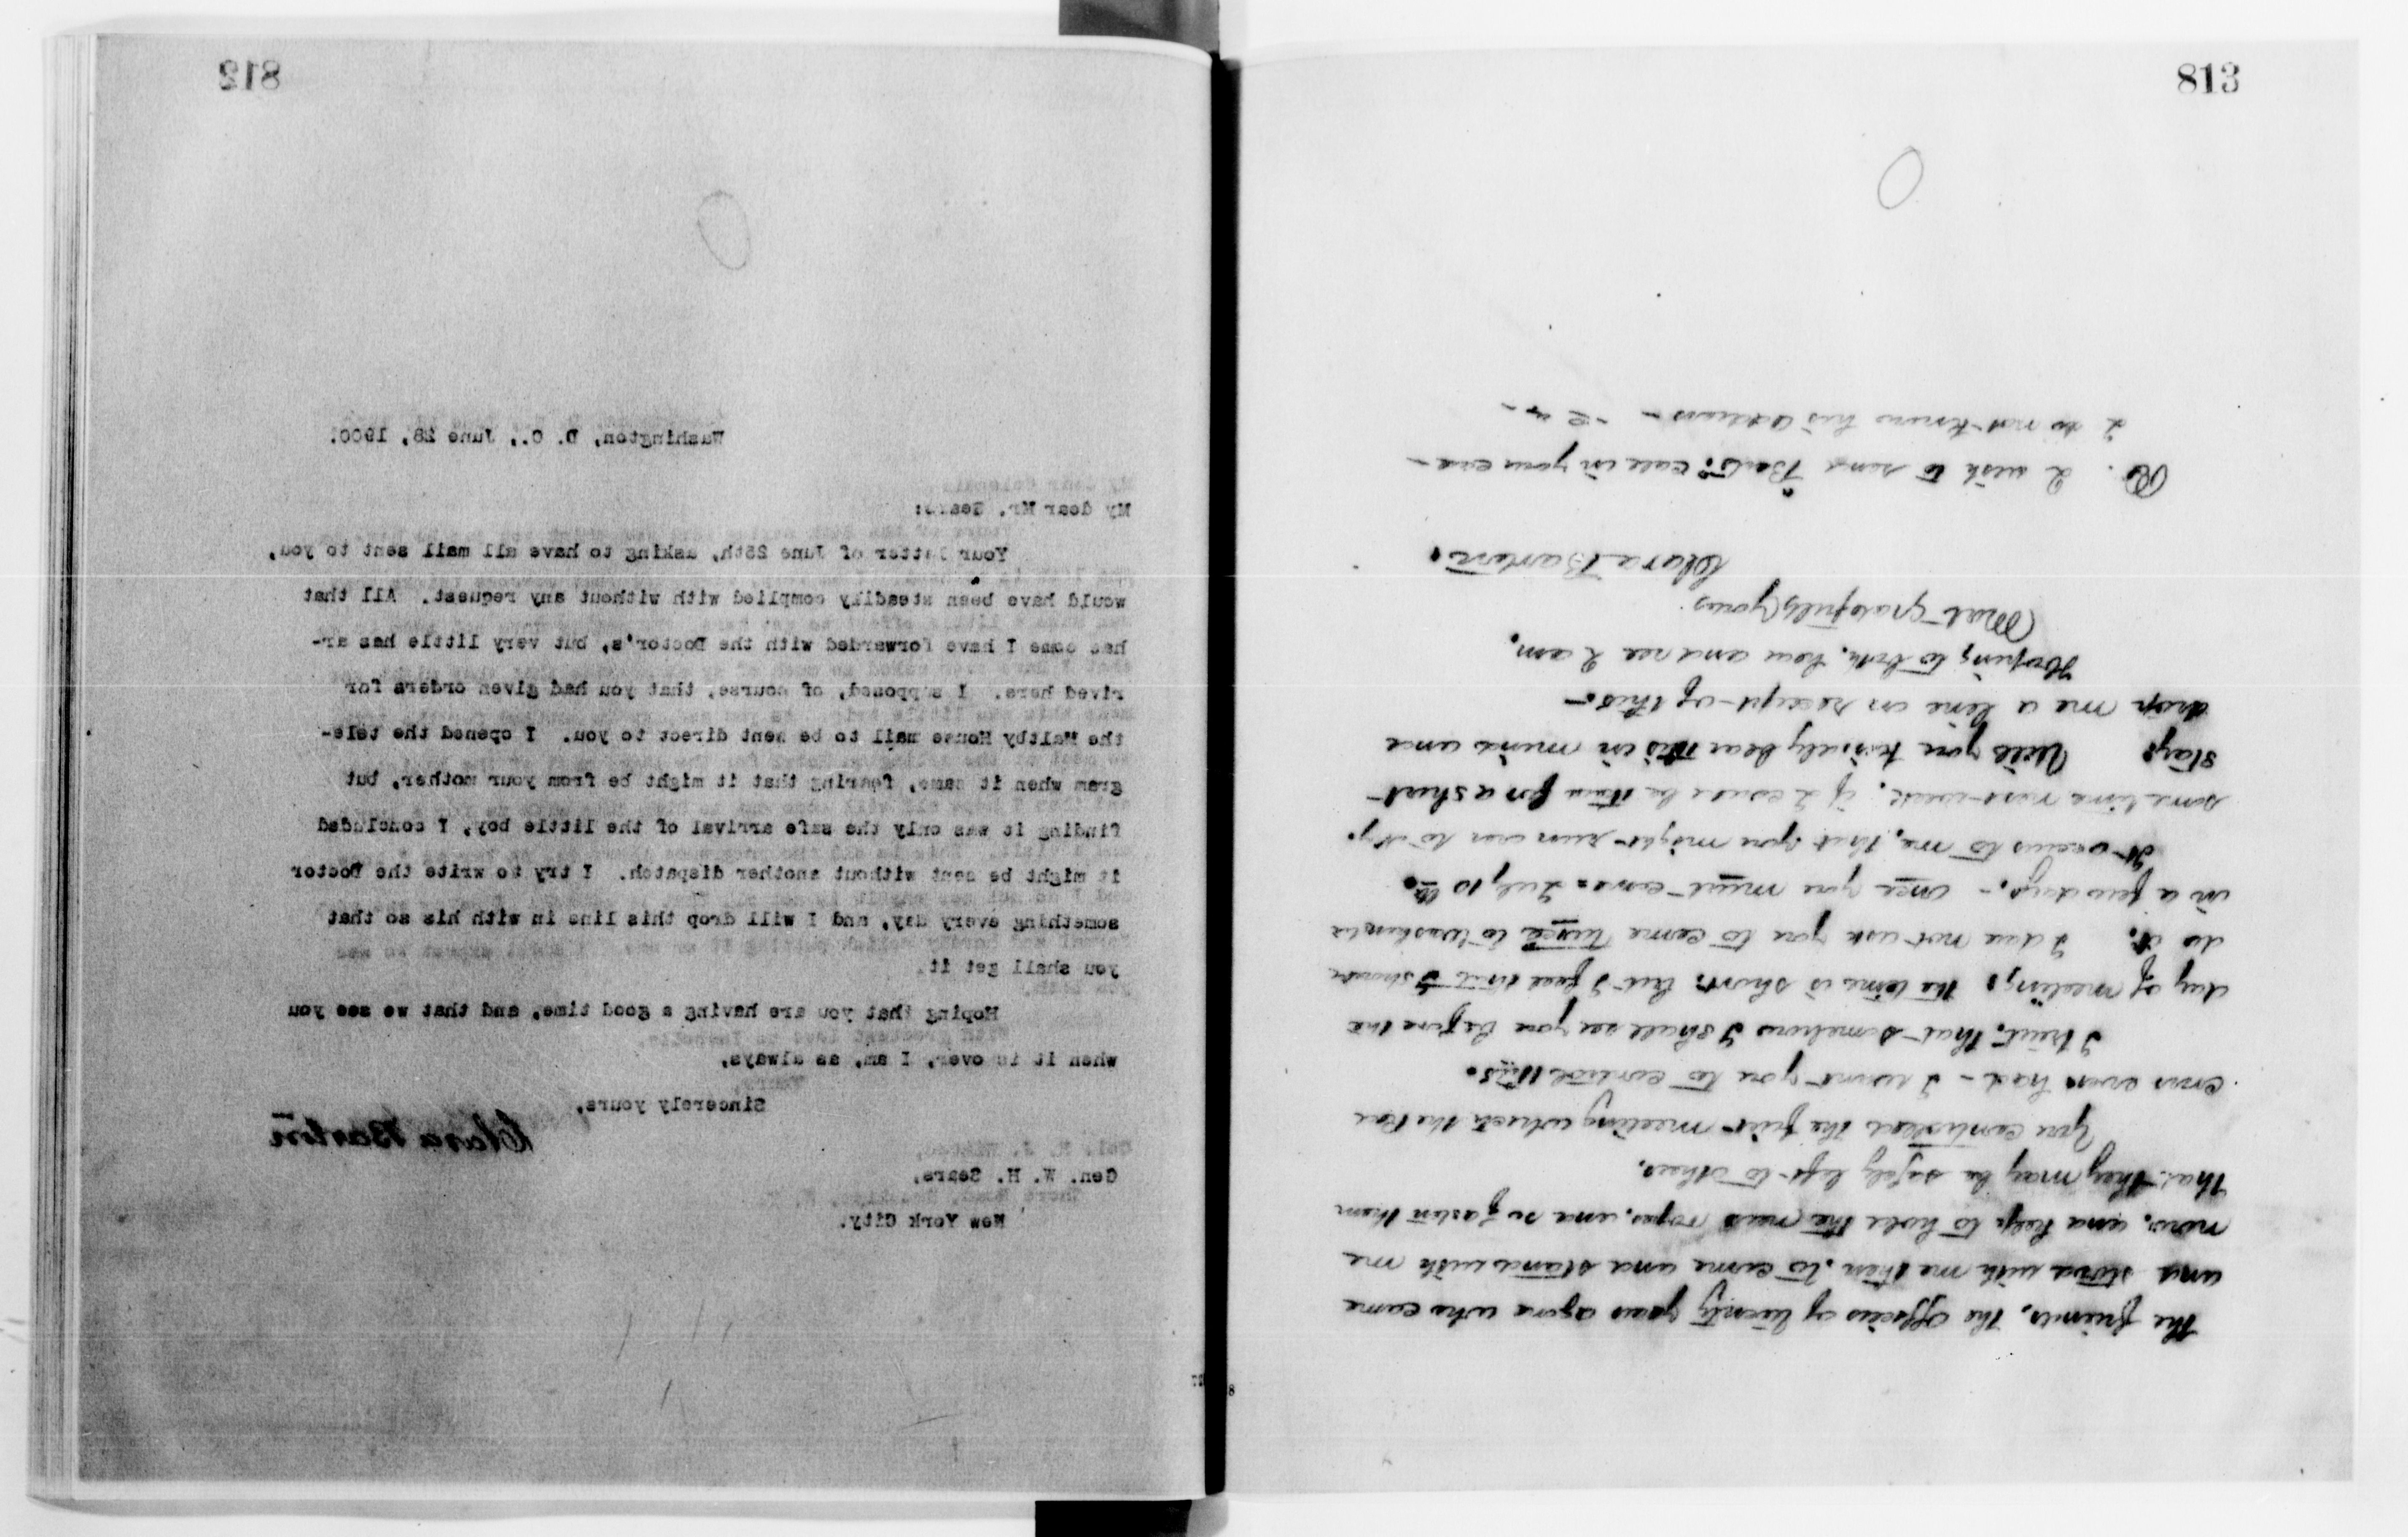 812
Washington, D. C., June 28, 1900.
My dear Mr. Sears:
Your letter of June 25th, asking to have all mail sent to you,
would have been steadily complied with without any request. All that
has come I have forwarded with the Doctor's, but very little has ar-
rived here. I supposed, of course, that you had given orders for
the Maltby House mail to be sent direct to you. I opened the tele-
gram when it came, fearing that it might be from your mother, but
finding it was only the safe arrival of the little boy, I concluded
it might be sent without another dispatch. I try to write the Doctor
something every day, and I will drop this line in with his so that
you shall get it.
Hoping that you are having a good time, and that we see you
when it is over, I am, as always,
Sincerely yours,
Clara Barton
Gen. W. H. Sears,
New York City.
813
The friends, the officers of twenty years agone who came
and stood with me then, to come and stand with me
now, and help to hold the ropes, and so fasten them
that they may be safely left to others.
You controlled the first meeting which the Red
Cross ever had - I want you to control this.
I trust, that somehow I shall see you before the
day of meeting, the time is short, but I feel that I should
do it. I dare not ask you to come twice to Washington
in a few days. - Once you must come = July 10th.
It occurs to me, that you might run over to N.Y.
some time next week, if I could be there for a short
stay. Will you kindly bear this in mind and
drop me a line on receipt of this. -
Hoping to both, hear and see I am,
Most gratefully yours
Clara Barton.
I wish to send call in your care -
I do not know his address -